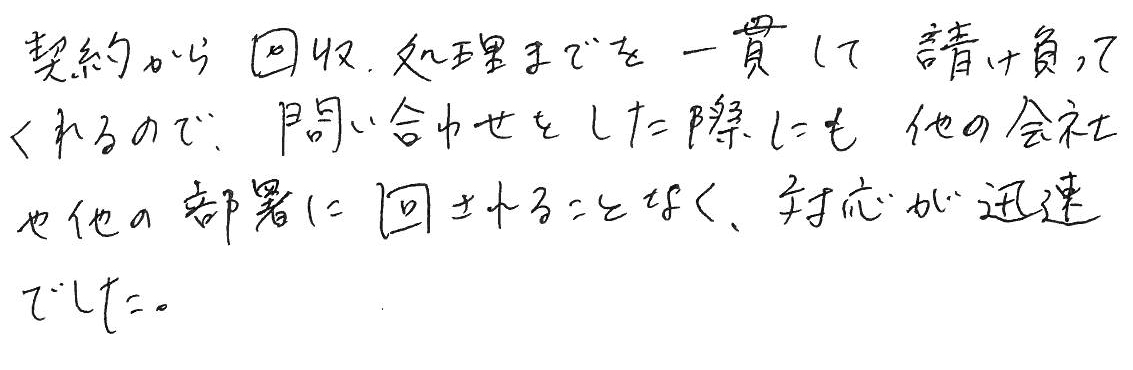 契約から回収、処理までを一貫して請け負って
くれるので、問い合わせをした際にも他の会社
や他の部署に回されることなく、対応が迅速
でした。